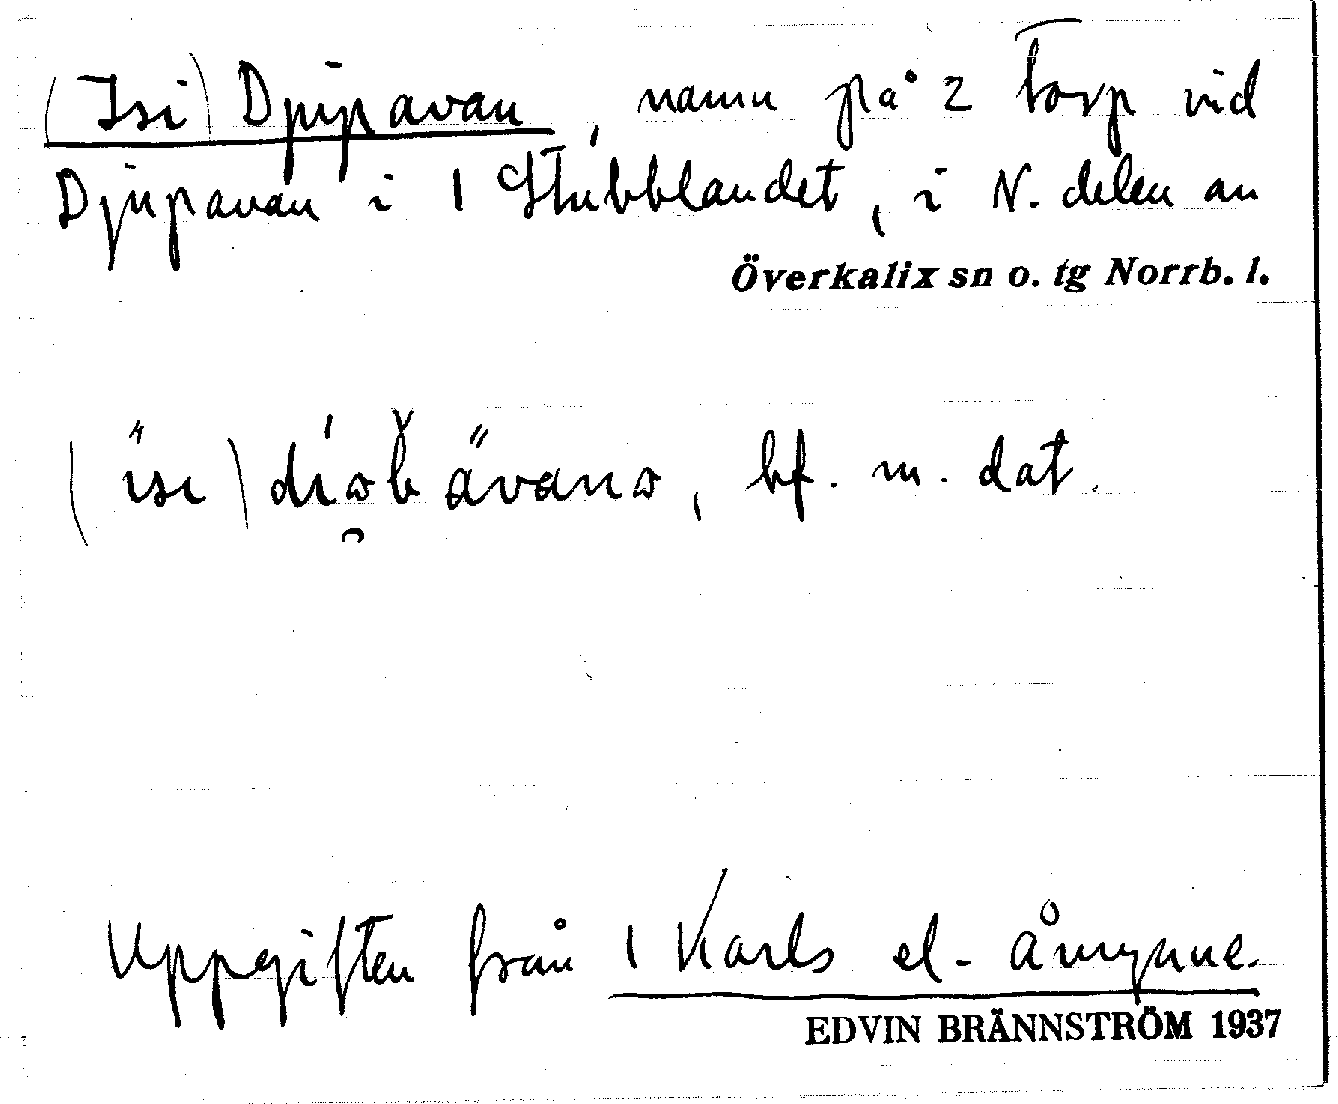 (Isi) Djupavan, namn på 2 torp vid
Djupavan i 1 Stubblandet, i N. delen av
Överkalix sn o. tg Norrb. l.
bf. m. dat.
Uppgiften från 1 Karls el. Åmynne.
EDVIN BRÄNNSTRÖM 1937